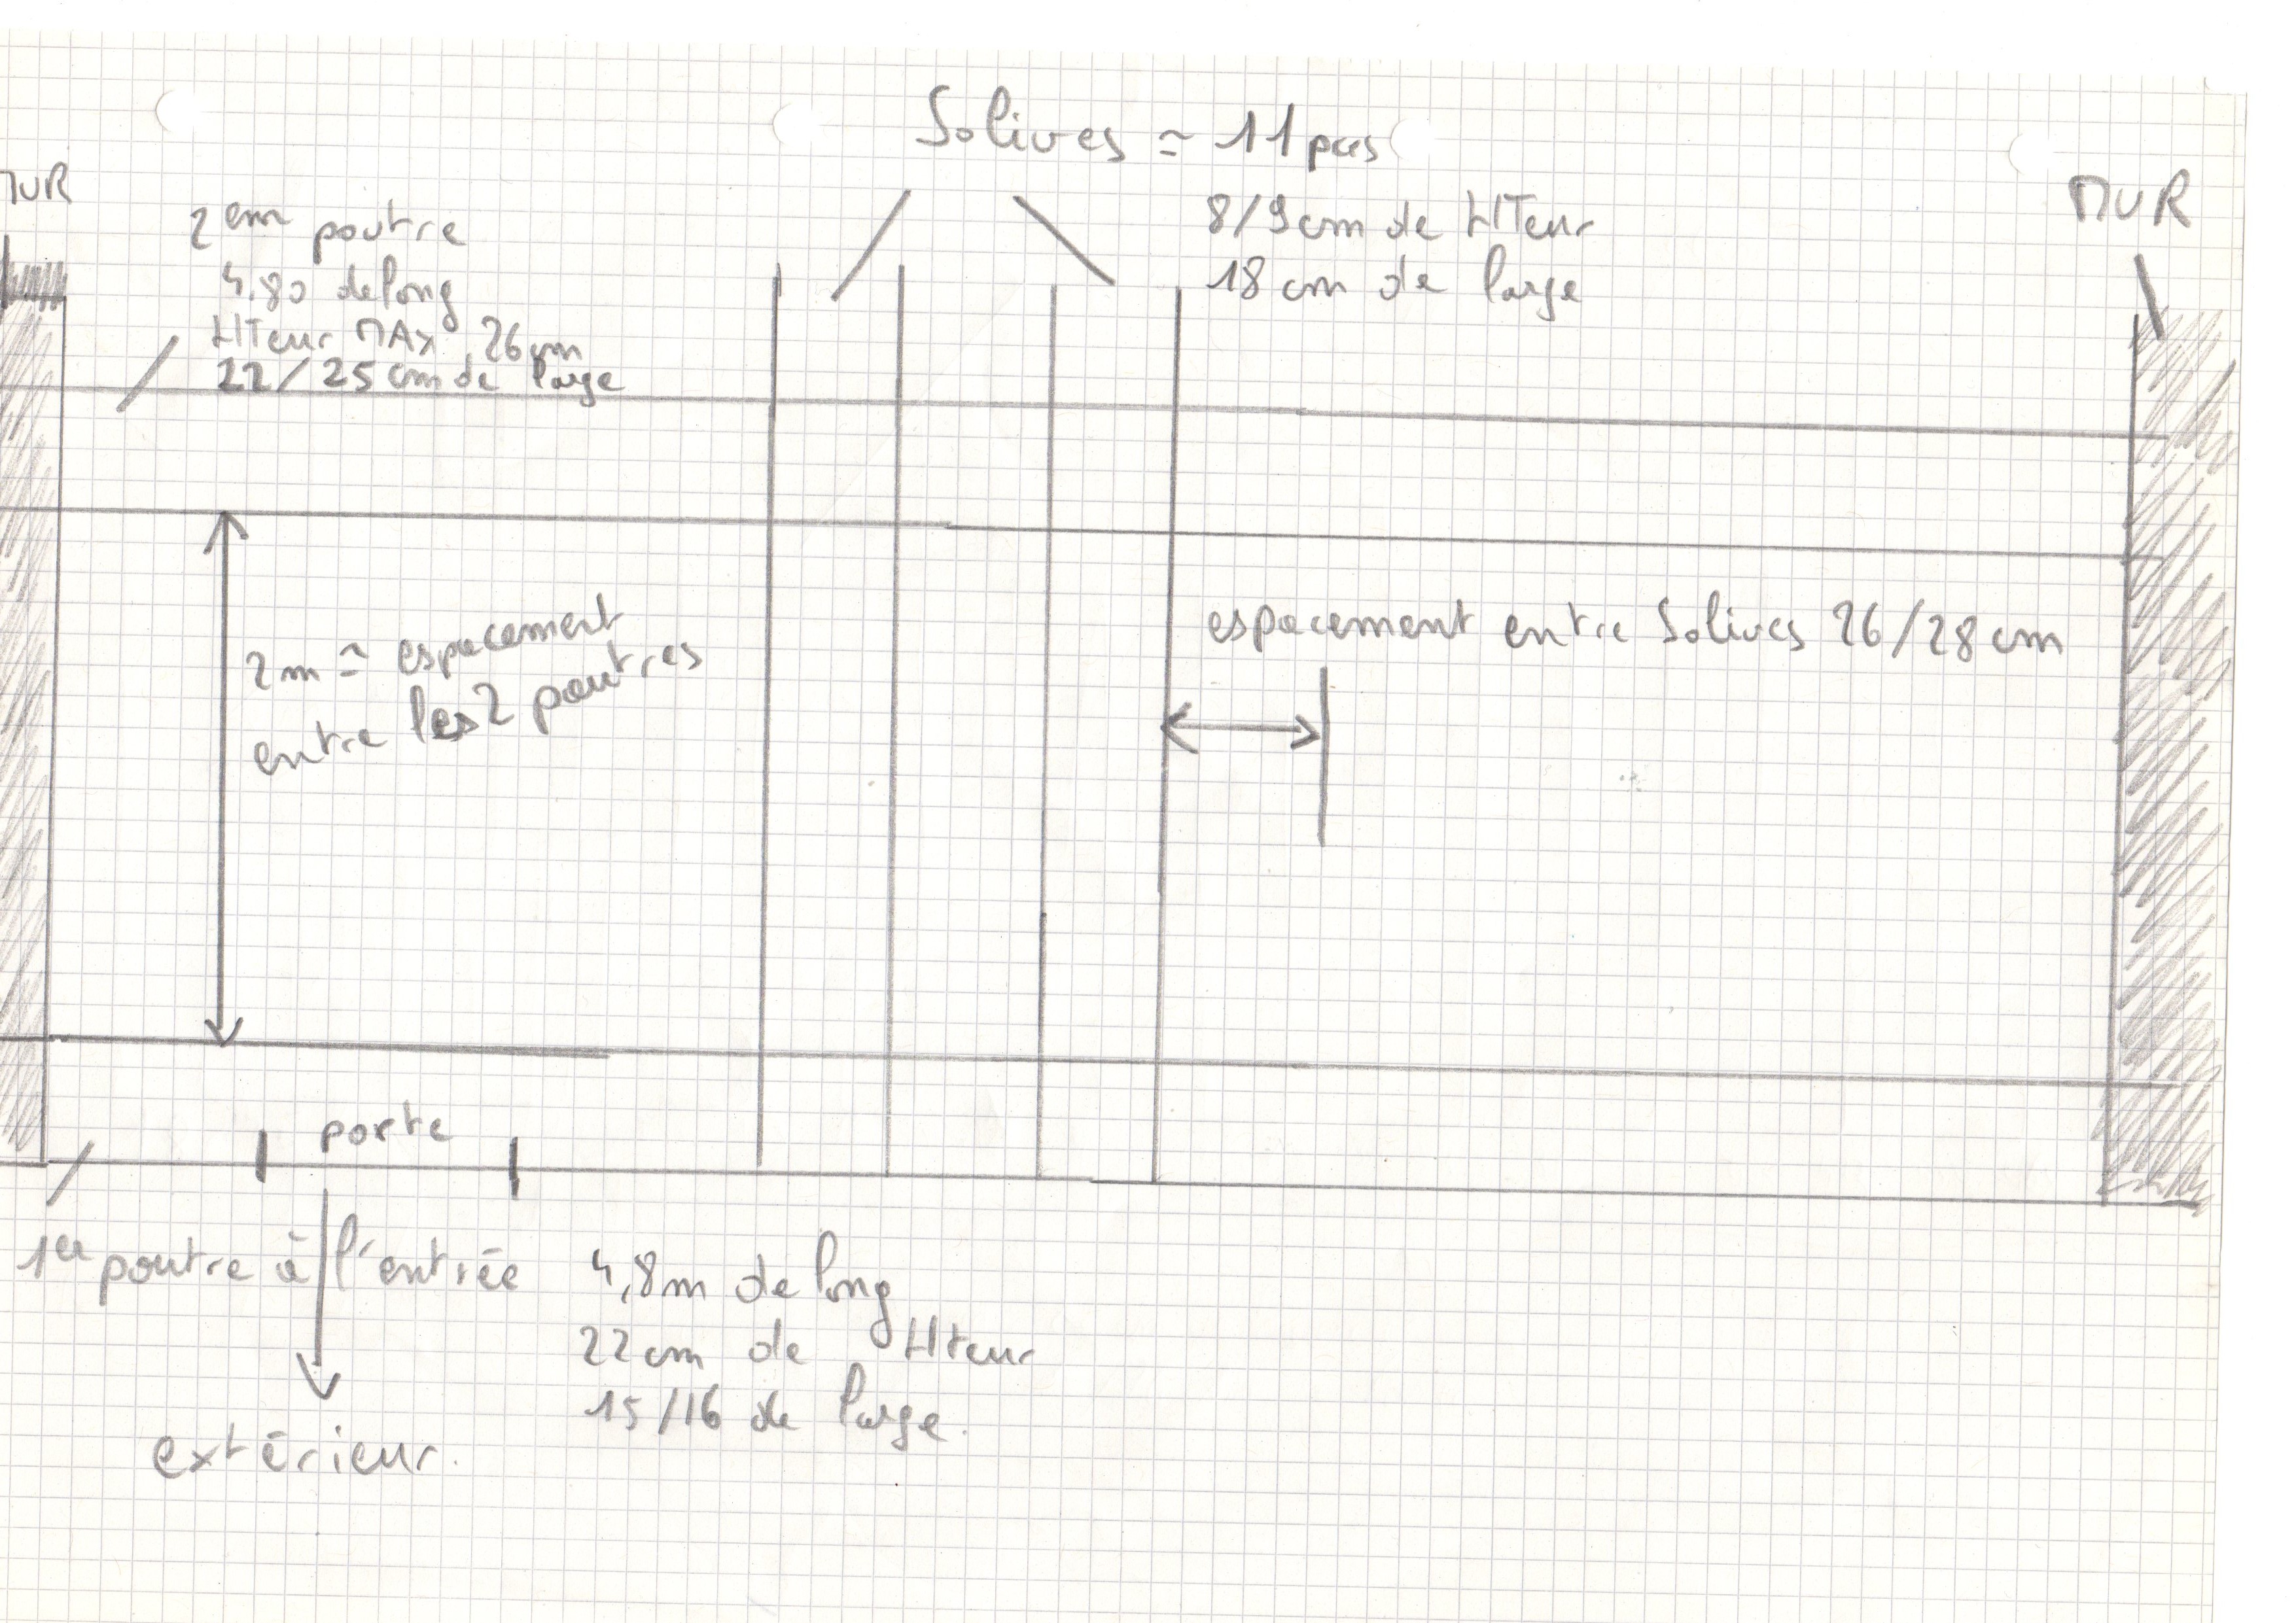 Solives ≃ 11 pces
MUR
2em poutre
4,80 de long
HTeur MAx 26cm
22/25 cm de large
8/9cm de HTeur
18 cm de large
MUR
espacement entre Solives 26/28 cm
2m ≃ espacement
entre les 2 poutres
porte
1er poutre à l'entrée
4,8m de long
22cm de Hteur
15/16 de large.
extérieur.